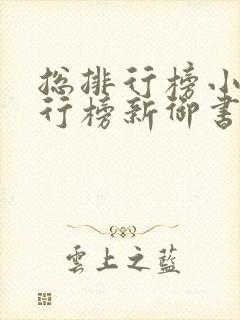 总排行榜小
行榜新御书
雲上之藍